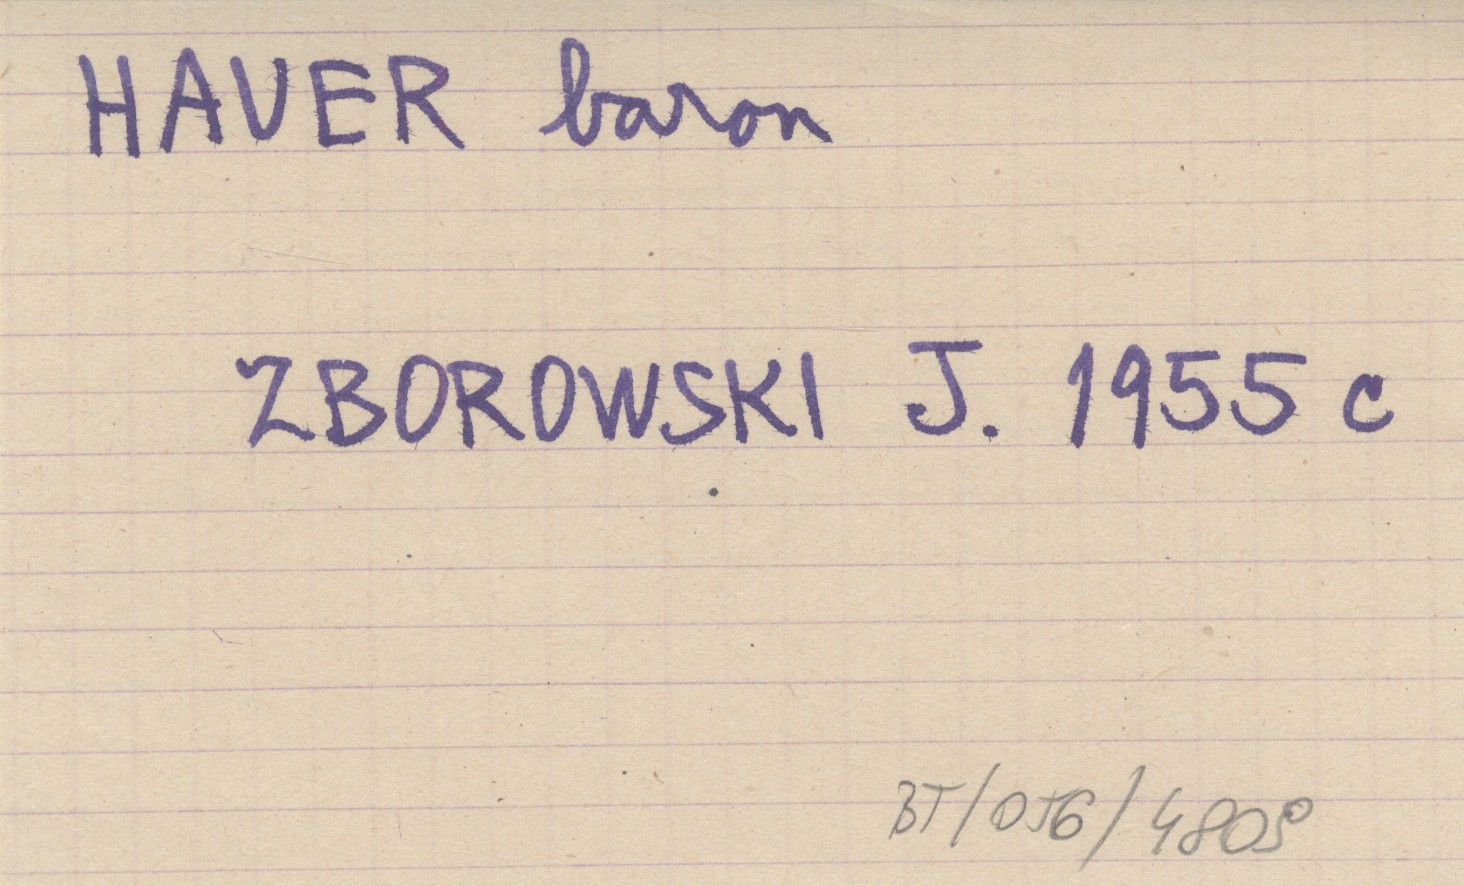 HAUER baron
ZBOROWSKI J. 1955 c
BT/056/4805